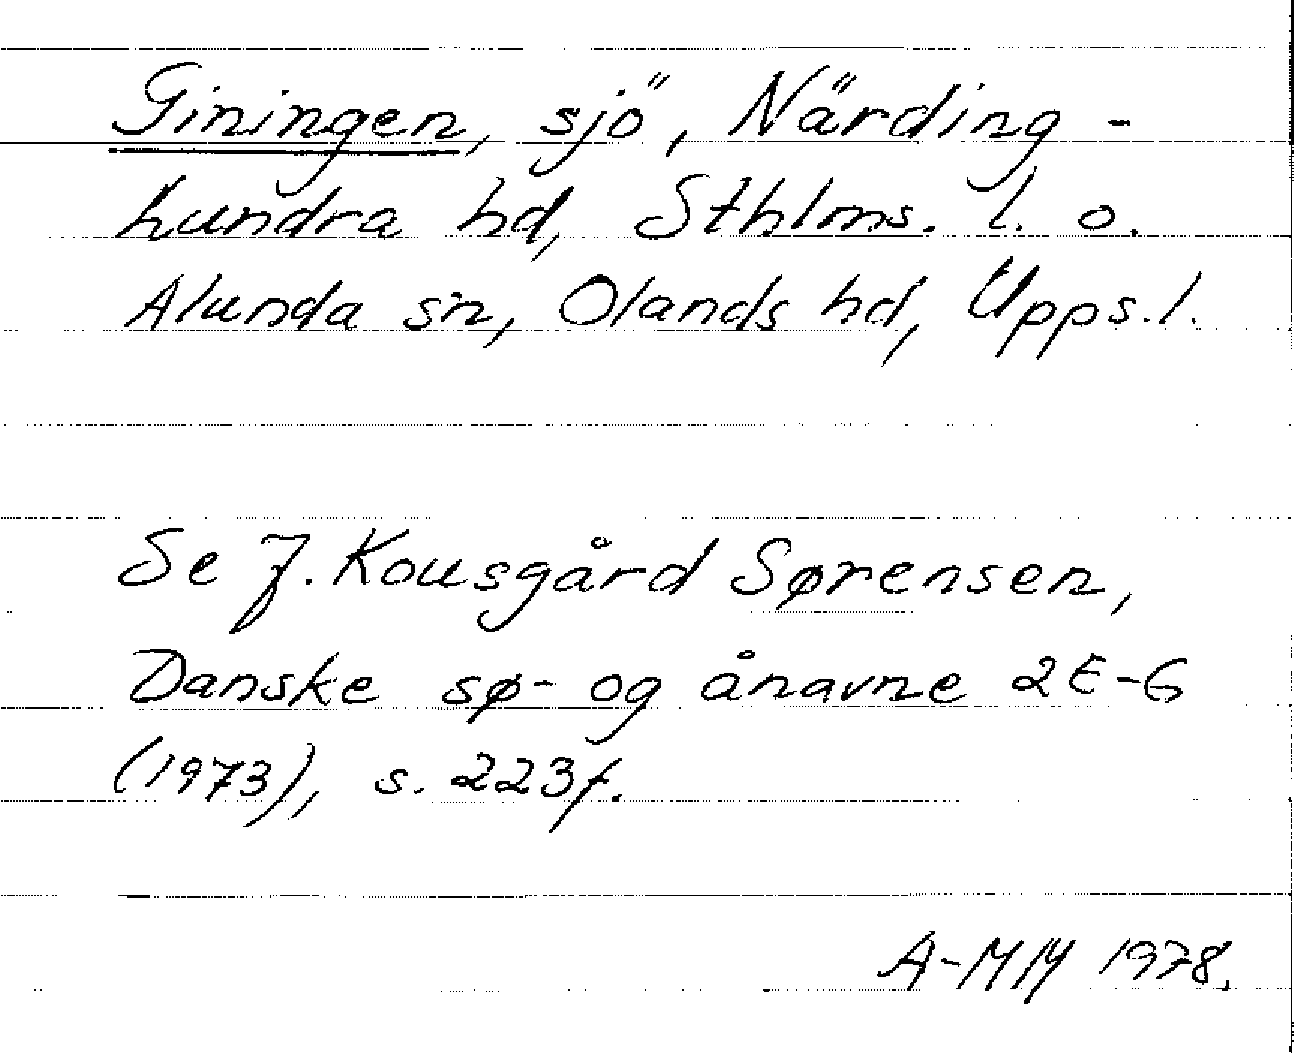 Giningen, sjö, Närding-
hundra hd, Sthlms. l. o.
Alunda sn, Olands hd, Upps. l.
Se J. Kousgård Sørensen,
Danske sø- og ånavne 2 E-G
(1973), s. 223f.
A-MM 1978.